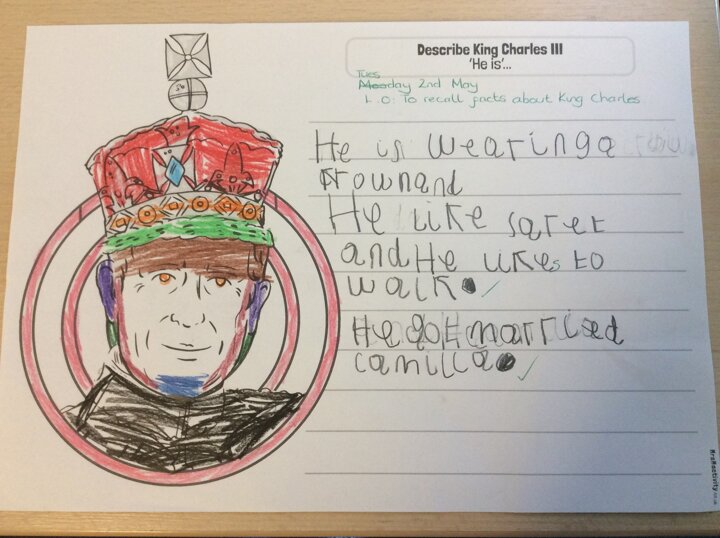 Describe King Charles III
'He is'...
Tues
Monday 2nd May
L.O: To recall facts about King Charles
He is wearing a
crown and
He like
and He likes to
walk.
He got married
camilla.